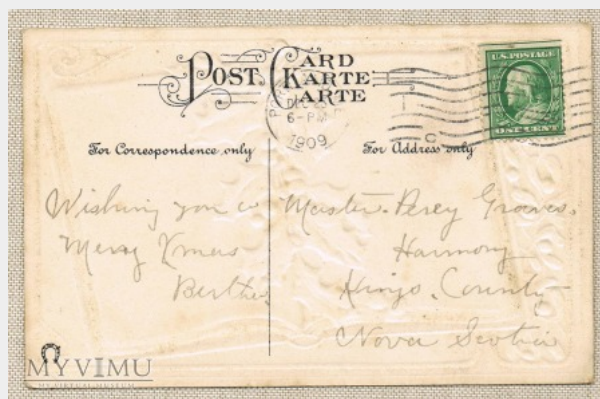 POST CARD
KARTE
CARTE
DEC
6-PM
1909
U.S. POSTAGE
ONE CENT
For Correspondence only
For Address only
Wishing you a
Merry Xmas
Bertha
Master. Percy Graves.
Harmony
Kings. County
Nova Scotia
MYVIMU
MY VIRTUAL MUSEUM